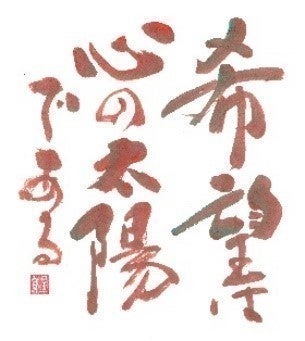 希望は
心の太陽
である